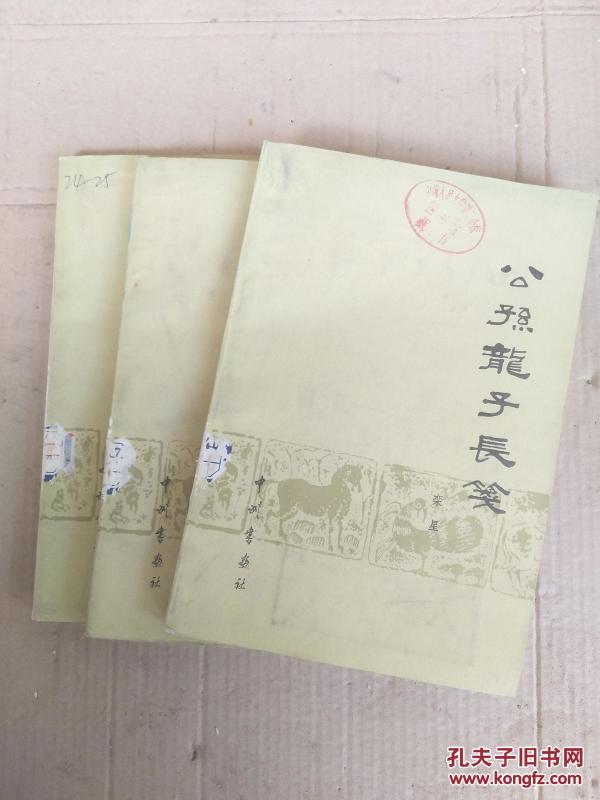 24-25
公孫龍子長箋
栾星
中州書画社
中州書画社
孔夫子旧书网
www.kongfz.com